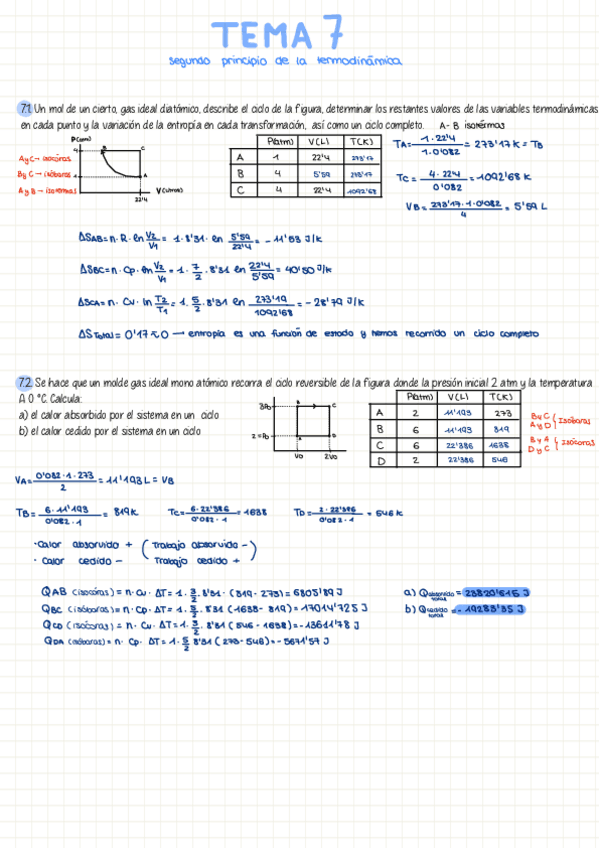 TEMA 7
segundo principio de la termodinámica
7.1. Un mol de un cierto, gas ideal diatómico, describe el ciclo de la figura, determinar los restantes valores de las variables termodinámicas
en cada punto y la variación de la entropía en cada transformación, así como un ciclo completo. A-B isotérmas
P(atm)
4 B C
A y C → isocóras
B y C → isóbaras
A y B → isotermas
1 A
V (Litros)
22'4
P(atm) V(L) T(K)
A 1 22'4 273'17
B 4 5'59 273'17
C 4 22'4 1092'68
TA = 1·22'4 / 1·0'082 = 273'17 K = TB
TC = 4·22'4 / 0'082 = 1092'68 K
VB = 273'17·1·0'082 / 4 = 5'59 L
ΔSAB = n·R·ln V2/V1 = 1·8'31·ln 5'59/22'4 = -11'53 J/K
ΔSBC = n·Cp·ln V2/V1 = 1·7/2·8'31 ln 22'4/5'59 = 40'50 J/K
ΔSCA = n·Cv·ln T2/T1 = 1·5/2·8'31 ln 273'19/1092'68 = -28'79 J/K
ΔSTotal = 0'17 ≈ 0 → entropía es una función de estado y hemos recorrido un ciclo completo
7.2. Se hace que un molde gas ideal mono atómico recorra el ciclo reversible de la figura donde la presión inicial 2 atm y la temperatura
A 0 °C. Calcula:
a) el calor absorbido por el sistema en un ciclo
b) el calor cedido por el sistema en un ciclo
3P0 B C
2=P0 A D
V0 2V0
P(atm) V(L) T(K)
A 2 11'193 273
B 6 11'193 819
C 6 22'386 1638
D 2 22'386 546
B y C
A y D
Isóbaras
B y A
D y C
Isócoras
VA = 0'082·1·273 / 2 = 11'193 L = VB
TB = 6·11'193 / 0'082·1 = 819K TC = 6·22'386 / 0'082·1 = 1638 TD = 2·22'386 / 0'082·1 = 546 K
·Calor absorvido + (Trabajo absorvido -)
·Calor cedido - Trabajo cedido +
QAB (isocóras) = n·Cv·ΔT = 1·3/2·8'31·(819-273) = 6805'89 J
QBC (isóbaras) = n·Cp·ΔT = 1·5/2·8'31 (1638-819) = 17014'725 J
QCD (isócoras) = n·Cv·ΔT = 1·3/2·8'31 (546-1638) = -13611'78 J
QDA (isóbaras) = n·Cp·ΔT = 1·5/2 8'31 (273-546) = -5671'57 J
a) Qabsorvido total = 23820'615 J
b) Qcedido total = -19283'35 J